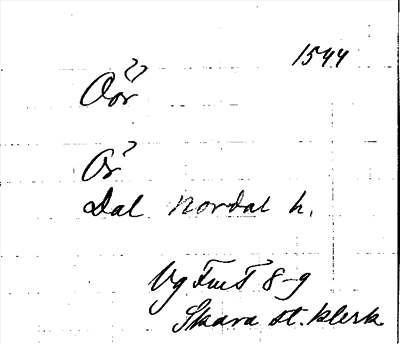 1544
Oör ??
Or ?
Dal Nordal h.
Vg FmT 8-9
Skara st. klerk